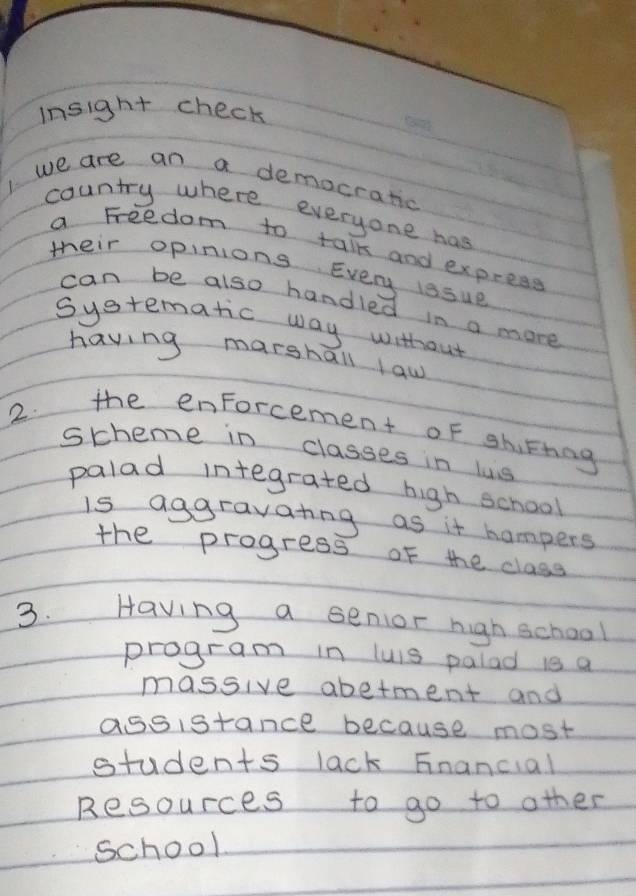 Insight check
1. we are an a democratic
country where everyone has
a Freedom to talk and express
their opinions. Every issue
can be also handled in a more
Systematic way without
having marshall law
2. the enForcement oF shiFting
Skheme in classes in luis
palad integrated high school
is aggravating as it hampers
the progress oF the class
3. Having a senior high school
program in luis palad is a
massive abetment and
assistance because most
students lack Financial
Resources to go to other
school.